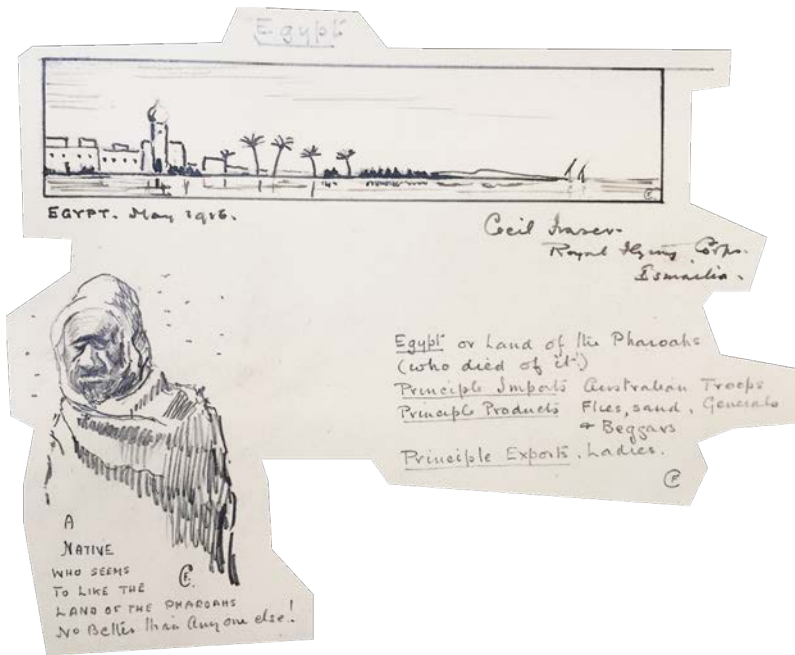 Egypt
EGYPT. May 1916.
Cecil Fraser.
Royal Flying Corps.
Ismailia.
Egypt or Land of the Pharoahs
(who died of it!)
Principle Imports Australian Troops
Principle Products Flies, sand, Generals
+ Beggars
Principle Exports. Ladies.
CF
A
NATIVE
WHO SEEMS
CF.
TO LIKE THE
LAND OF THE PHAROAHS
No Better than Anyone else!